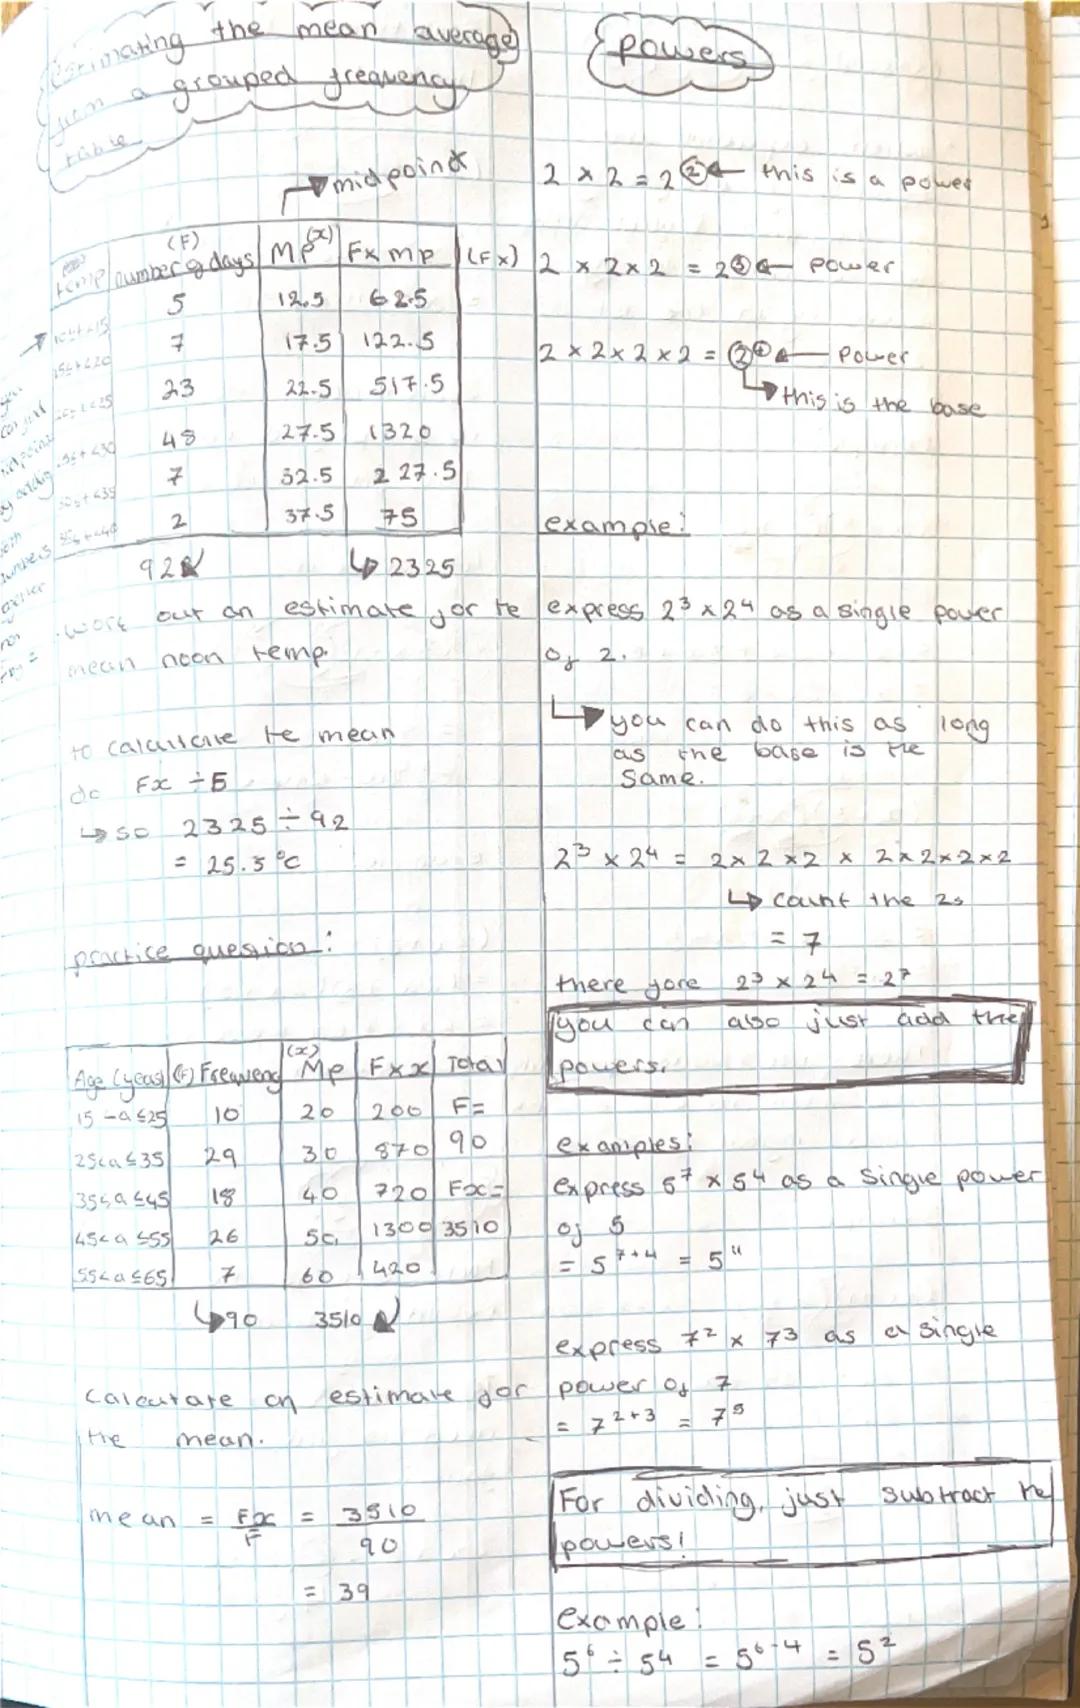 estimating the mean average
from a grouped frequency
table
midpoint
temp
(F)
number of days
Mp (x)
F x mp
(Fx)
5 12.5 62.5
15≤t<20 7 17.5 122.5
23 22.5 517.5
48 27.5 1320
7 32.5 227.5
2 37.5 75
92
2325
work out an estimate for te
mean noon temp.
to calculate te mean
do Fx ÷ F
so 2325 ÷ 92
= 25.3 °C
practice question:
Age (years) (F) Frequency (x) Mp F x x Total
15 -a≤25 10 20 200 F=
25<a≤35 29 30 870 90
35<a≤45 18 40 720 Fx=
45<a≤55 26 50 1300 3510
55<a≤65 7 60 420
90 3510
Calculate an estimate for
the mean.
mean = Fx/F = 3510/90
= 39
powers
2 x 2 = 2² ← this is a power
2 x 2 x 2 = 2³ ← power
2 x 2 x 2 x 2 = 2⁴ ← power
this is the base
example:
express 2³ x 2⁴ as a single power
of 2.
you can do this as long
as the base is the
same.
2³ x 2⁴ = 2 x 2 x 2 x 2 x 2 x 2 x 2
count the 2s
= 7
there fore 2³ x 2⁴ = 2⁷
you can also just add the
powers.
examples:
express 5⁷ x 5⁴ as a single power
of 5
= 5⁷⁺⁴ = 5¹¹
express 7² x 7³ as a single
power of 7
= 7²⁺³ = 7⁵
For dividing, just subtract te
powers!
Example:
5⁶ ÷ 5⁴ = 5⁶⁻⁴ = 5²